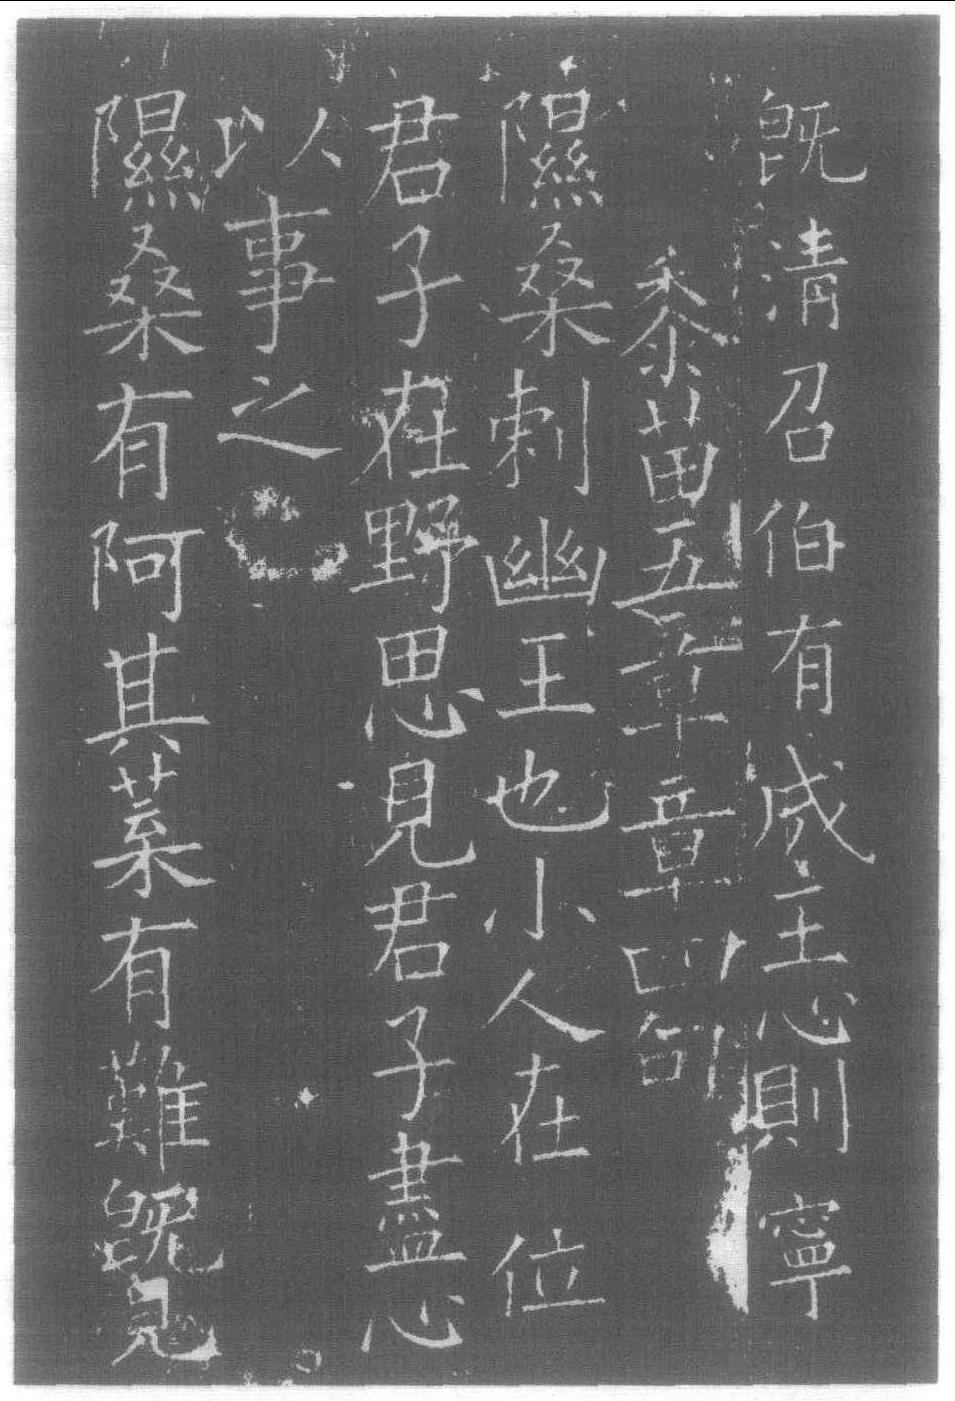 既清召伯有成王心則寧
黍苗五章章四句
隰桑刺幽王也小人在位
君子在野思見君子盡心
以事之
隰桑有阿其葉有難既見